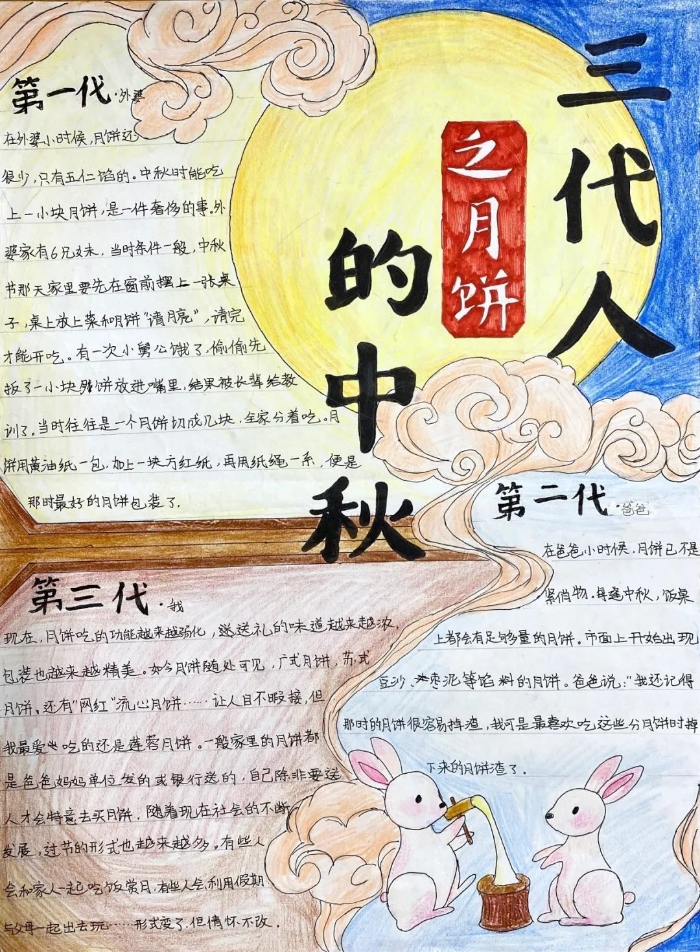 三代人
的中秋
之月饼
第一代·外婆
在外婆小时候,月饼还
很少,只有五仁馅的。中秋时能吃
上一小块月饼,是一件奢侈的事。外
婆家有6兄妹,当时条件一般,中秋
节那天家里要先在窗前摆上一张桌
子,桌上放上菜和月饼“请月亮”,请完
才能开吃。有一次小舅公饿了,偷偷先
扳了一小块月饼放进嘴里,结果被长辈给教
训了。当时往往是一个月饼切成几块,全家分着吃。月
饼用黄油纸一包,加上一块方红纸,再用纸绳一系,便是
那时最好的月饼包装了.
第二代·爸爸
在爸爸小时候,月饼已不是
紧俏物.每逢中秋,饭桌
上都会有足够量的月饼。市面上开始出现
豆沙、枣泥等馅料的月饼。爸爸说:“我还记得
那时的月饼很容易掉渣,我可是最喜欢吃这些分月饼时掉
下来的月饼渣了.
第三代·我
现在,月饼吃的功能越来越弱化,送送礼的味道越来越浓,
包装也越来越精美。如今月饼随处可见,广式月饼,苏式
月饼,还有“网红”流心月饼……让人目不暇接,但
我最爱吃的还是莲蓉月饼。一般家里的月饼都
是爸爸妈妈单位发的或银行送的,自己除非要送
人才会特意去买月饼.随着现在社会的不断
发展,过节的形式也越来越多。有些人
会和家人一起吃饭赏月,有些人会利用假期
与父母一起出去玩……形式变了,但情怀不改.